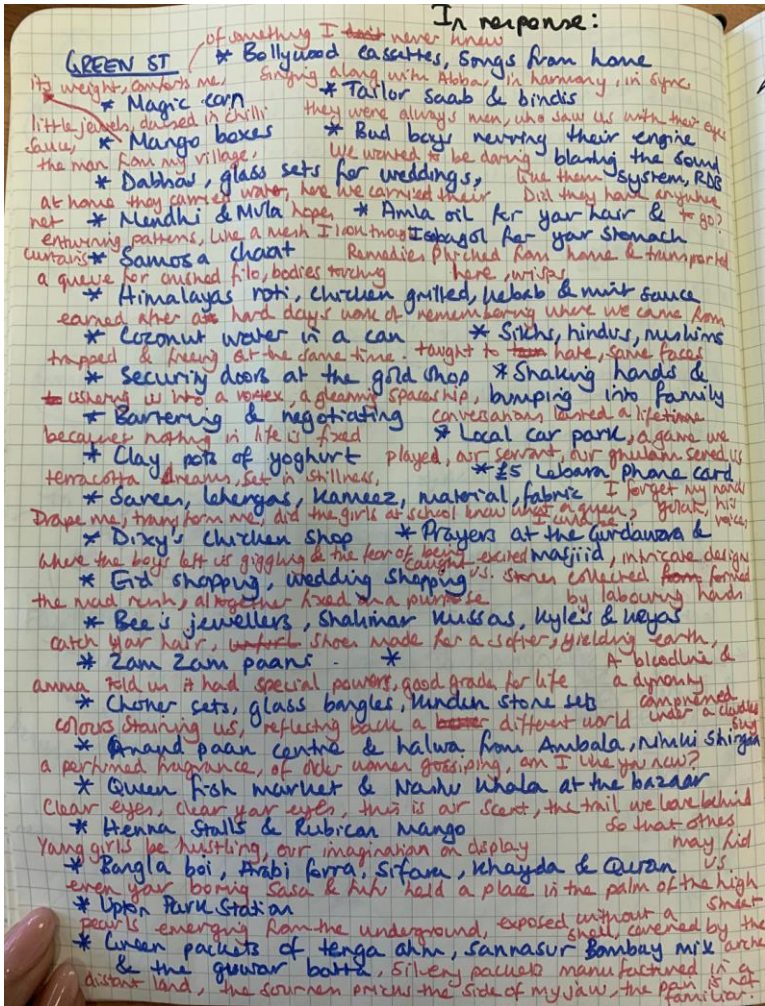 In response:
of something I don't never knew
GREEN ST * Bollywood cassettes, songs from home
its weight, comforts me, Singing along with Abba, in harmony, in sync
* Magic corn * Tailor Saab & bindis
little jewels, doused in chilli they were always men, who saw us with their eyes
sauce, * Mango boxes * Bad boys revving their engine
the man from my village, We wanted to be daring blaring the sound
* Dabbas, glass sets for weddings, like them system, RDB
at home they carried water, here we carried their Did they have anywhere
net * Mendhi & Mula hopes * Amla oil for your hair & to go?
entwining patterns, like a mesh I look through Isabagol for your stomach
curtains * Samosa chaat Remedies pinched from home & transported
a queue for crushed filo, bodies touching here, wisps
* Himalayas roti, chicken grilled, kebab & mint sauce
earned after a hard day's work of remembering where we came from
* Coconut water in a can * Sikhs, hindus, muslims
trapped & freeing at the same time. taught to hate, same faces
* Security doors at the gold shop * Shaking hands &
ushering us into a vortex, a gleaming spaceship, bumping into family
* Bartering & negotiating conversations lasted a lifetime
because nothing in life is fixed * Local car park, a game we
* Clay pots of yoghurt played, our servant, our ghulam served us
terracotta dreams, set in stillness, * £5 Lebara phone card
* Sarees, lehengas, kameez, material, fabric I forget my nana
Drape me, transform me, did the girls at school know what a queen, his
I voice,
* Dixy's chicken shop * Prayers at the Gurdawara &
where the boys left us giggling & the fear of being caught excited masjiid, intricate designs
* Eid shopping, wedding shopping us. stones collected from formed
the mad rush, altogether fixed on a purpose by labouring hands
* Bee's jewellers, Shalimar kussas, Kyles & Keyas
catch your hair, shoes made for a softer, yielding earth,
* Zam Zam paans. * A bloodline &
amma told us it had special powers, good grades for life a dynasty
* Choker sets, glass bangles, kunden stone sets
colours staining us, reflecting back a different world under a cloudless
sky
* Anand paan centre & halwa from Ambala, nimki shingara
a perfumed fragrance, of older women gossiping, am I like you now?
* Queen fish market & Nashu whala at the bazaar
Clear eyes, clear your eyes, this is our scent, the trail we leave behind
* Henna stalls & Rubican mango so that others
Young girls be hustling, our imagination on display may find
* Bangla boi, Arabi forra, Sifara, Khayda & Quran us
even your boring Sasa & fufu held a place in the palm of the high
* Upton Park Station street
pearls emerging from the underground, exposed without a shell, covered by the
* Green packets of tenga ahm, sannasur Bombay mix arches
& the guwar batta, silvery packets manufactured in a
distant land, the sourness pricks the side of my jaw, the pain is not
familiar.